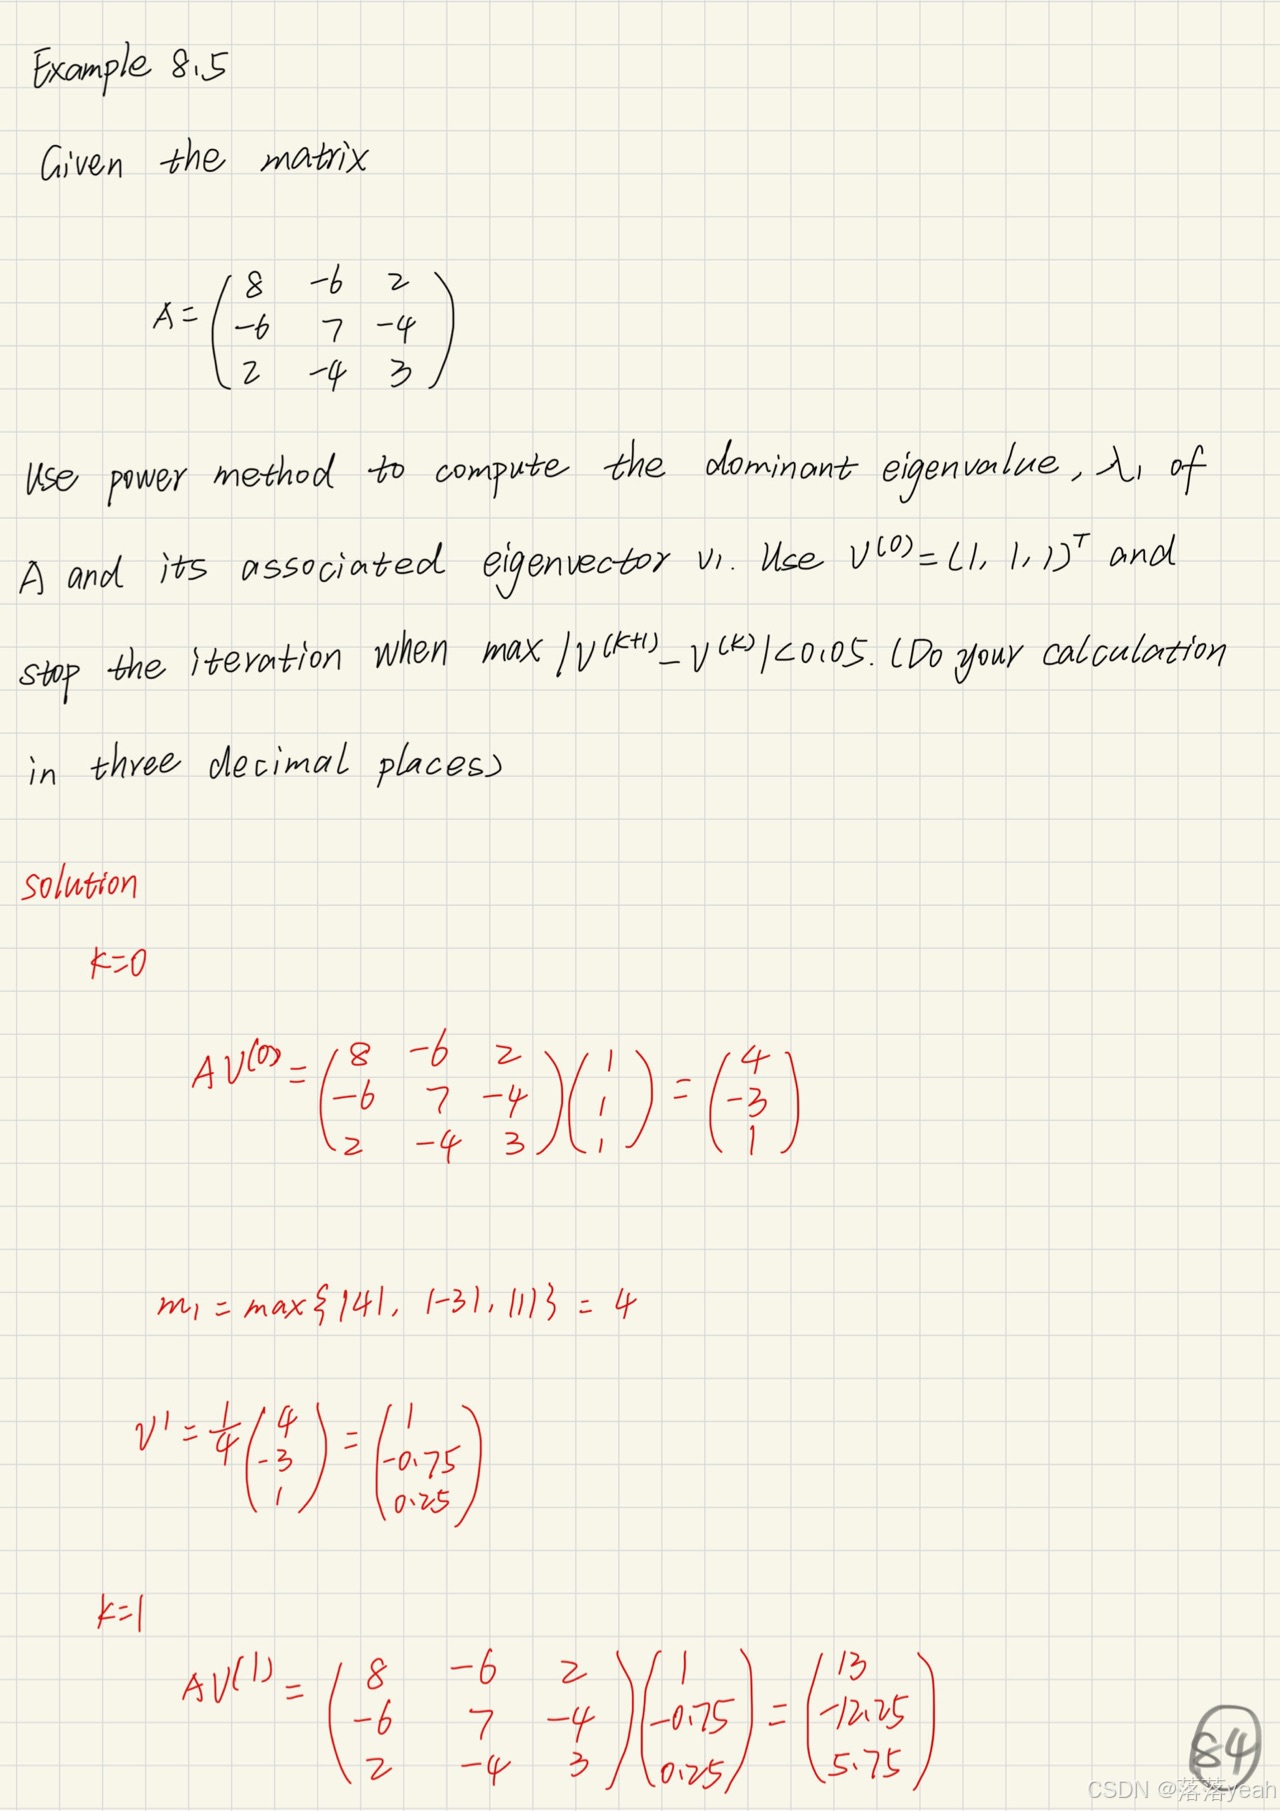 Example 8.5
Given the matrix
A = ( 8 -6 2
-6 7 -4
2 -4 3 )
Use power method to compute the dominant eigenvalue, λ₁ of
A and its associated eigenvector v₁. Use v⁽⁰⁾ = (1, 1, 1)ᵀ and
stop the iteration when max |v⁽ᵏ⁺¹⁾ - v⁽ᵏ⁾| < 0.05. (Do your calculation
in three decimal places)
solution
k=0
AV⁽⁰⁾ = ( 8 -6 2 ) ( 1 ) = ( 4 )
( -6 7 -4 ) ( 1 ) ( -3 )
( 2 -4 3 ) ( 1 ) ( 1 )
m₁ = max{|4|, |-3|, |1|} = 4
v¹ = 1/4 ( 4 ) = ( 1 )
( -3 ) ( -0.75 )
( 1 ) ( 0.25 )
k=1
AV⁽¹⁾ = ( 8 -6 2 ) ( 1 ) = ( 13 )
( -6 7 -4 ) ( -0.75 ) ( -12.25 )
( 2 -4 3 ) ( 0.25 ) ( 5.75 )
84
CSDN @落落yeah